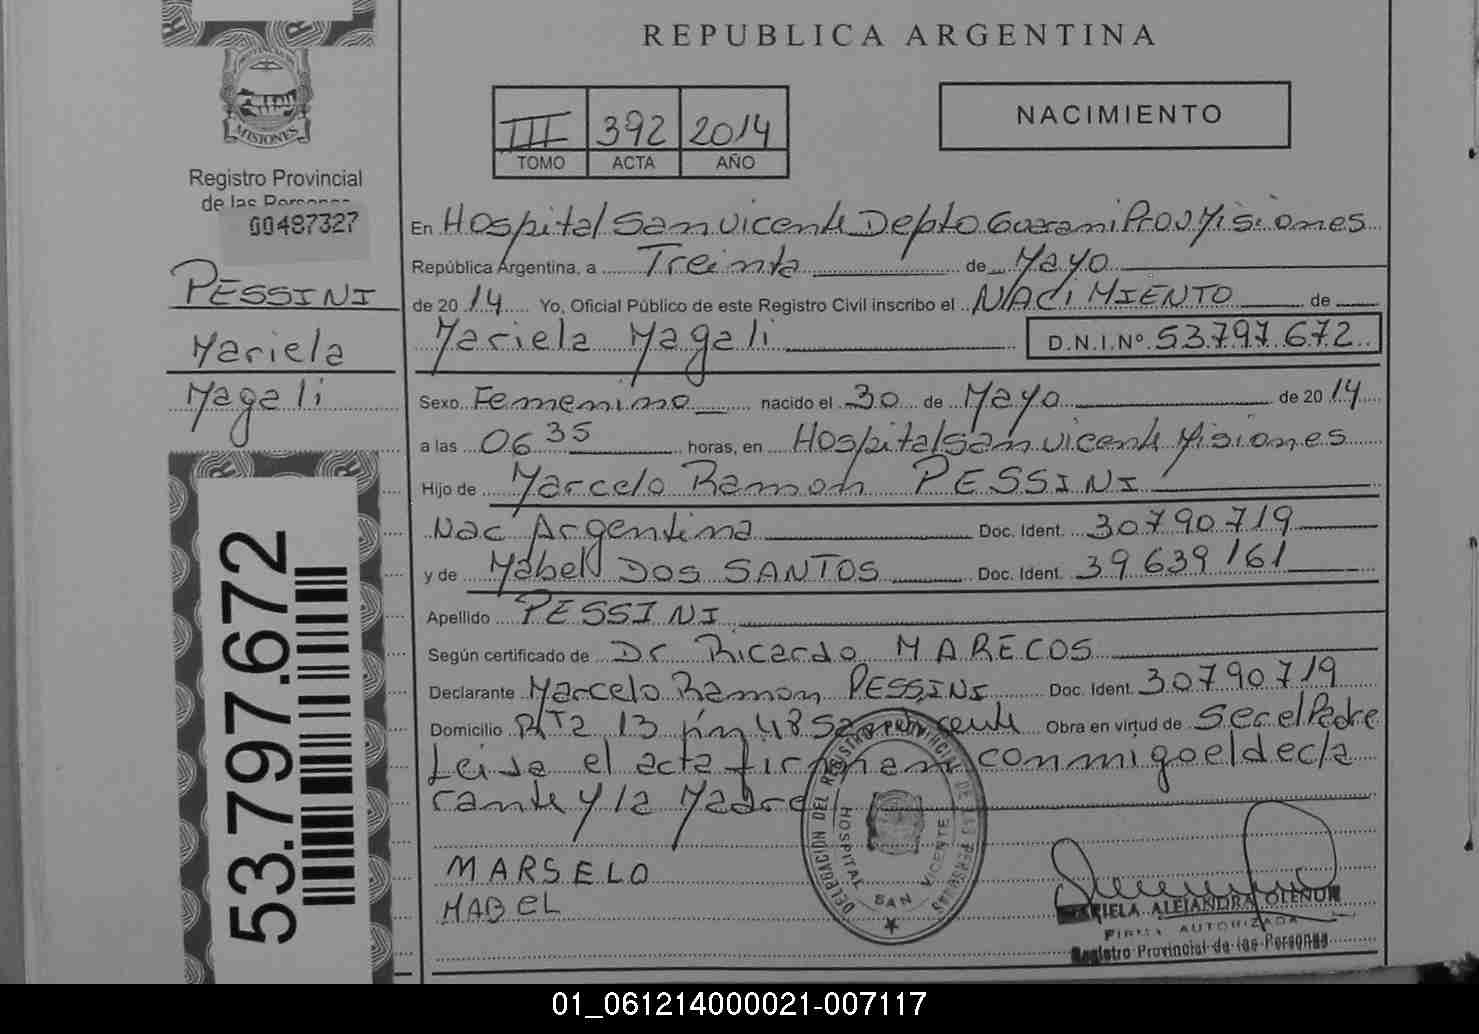 REPUBLICA ARGENTINA
MISIONES
Registro Provincial
de las Personas
00487327
PESSINI
Mariela
Magali
53.797.672
III 392 2014
TOMO ACTA AÑO
NACIMIENTO
En Hospital San Vicente Depto Guarani Prov Misiones
República Argentina, a Treinta de Mayo
de 2014 Yo, Oficial Público de este Registro Civil inscribo el NACIMIENTO de
Mariela Magali D.N.I.Nº 53.797.672
Sexo Femenino nacido el 30 de Mayo de 2014
a las 06 35 horas, en Hospital San Vicente Misiones
Hijo de Marcelo Ramon PESSINI
Nac Argentina Doc. Ident. 30790719
y de Mabel DOS SANTOS Doc. Ident. 39639161
Apellido PESSINI
Según certificado de Dr Ricardo MARECOS
Declarante Marcelo Ramon PESSINI Doc. Ident. 30790719
Domicilio 13 San Vicente Obra en virtud de Ser el Padre
Leida el acta firman conmigo el decla
rante y la Madre
MARSELO
MABEL
DELEGACION DEL REGISTRO PROVINCIAL DE LAS PERSONAS
HOSPITAL SAN VICENTE
MARIELA ALEJANDRA OLENUK
FIRMA AUTORIZADA
Registro Provincial de las Personas
01_061214000021-007117